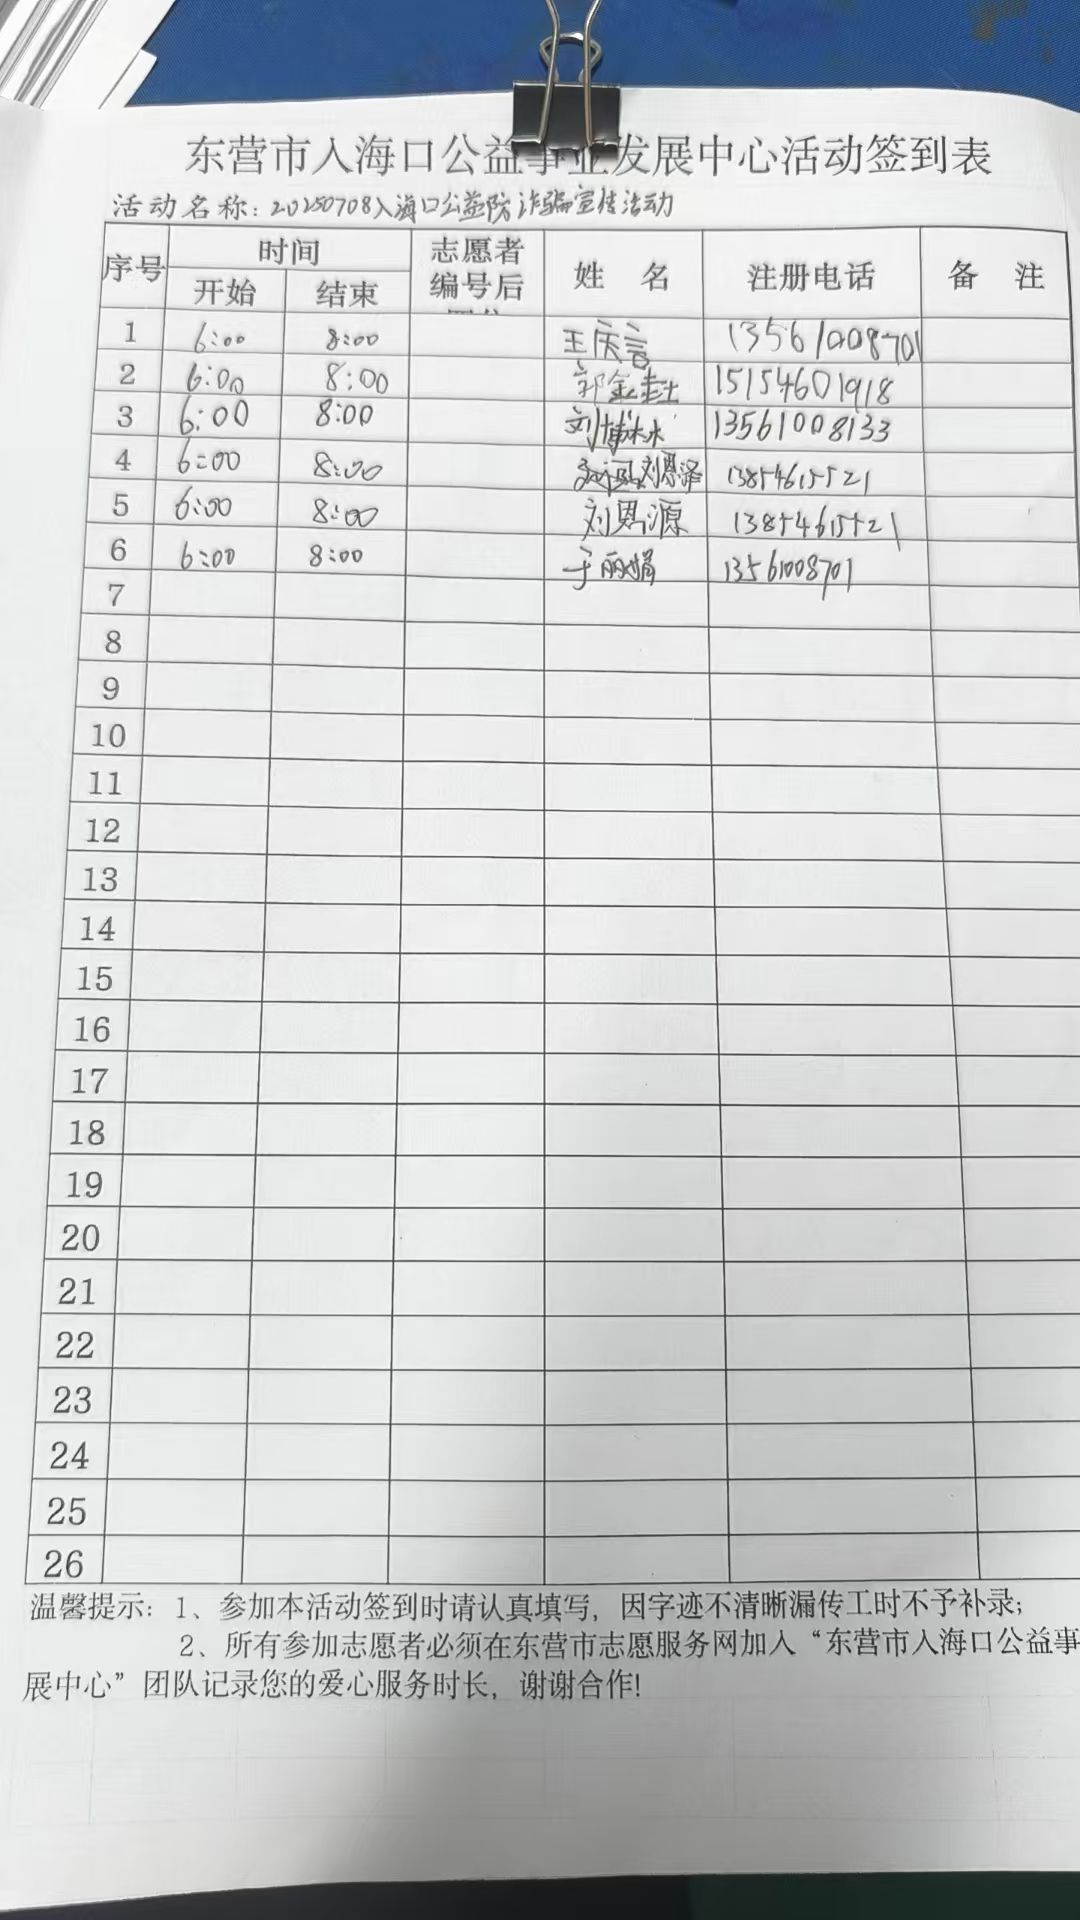 东营市入海口公益事业发展中心活动签到表
活动名称：20250708入海口公益防诈骗宣传活动
序号 时间 志愿者编号后 姓 名 注册电话 备 注
开始 结束
1 6:00 8:00 王庆言 13561008701
2 6:00 8:00 郭金 15154601918
3 6:00 8:00 刘博林 13561008133
4 6:00 8:00 刘恩泽 13854615521
5 6:00 8:00 刘恩源 13854615521
6 6:00 8:00 于丽娟 13561008701
7
8
9
10
11
12
13
14
15
16
17
18
19
20
21
22
23
24
25
26
温馨提示：1、参加本活动签到时请认真填写，因字迹不清晰漏传工时不予补录；
2、所有参加志愿者必须在东营市志愿服务网加入“东营市入海口公益事
展中心”团队记录您的爱心服务时长，谢谢合作！